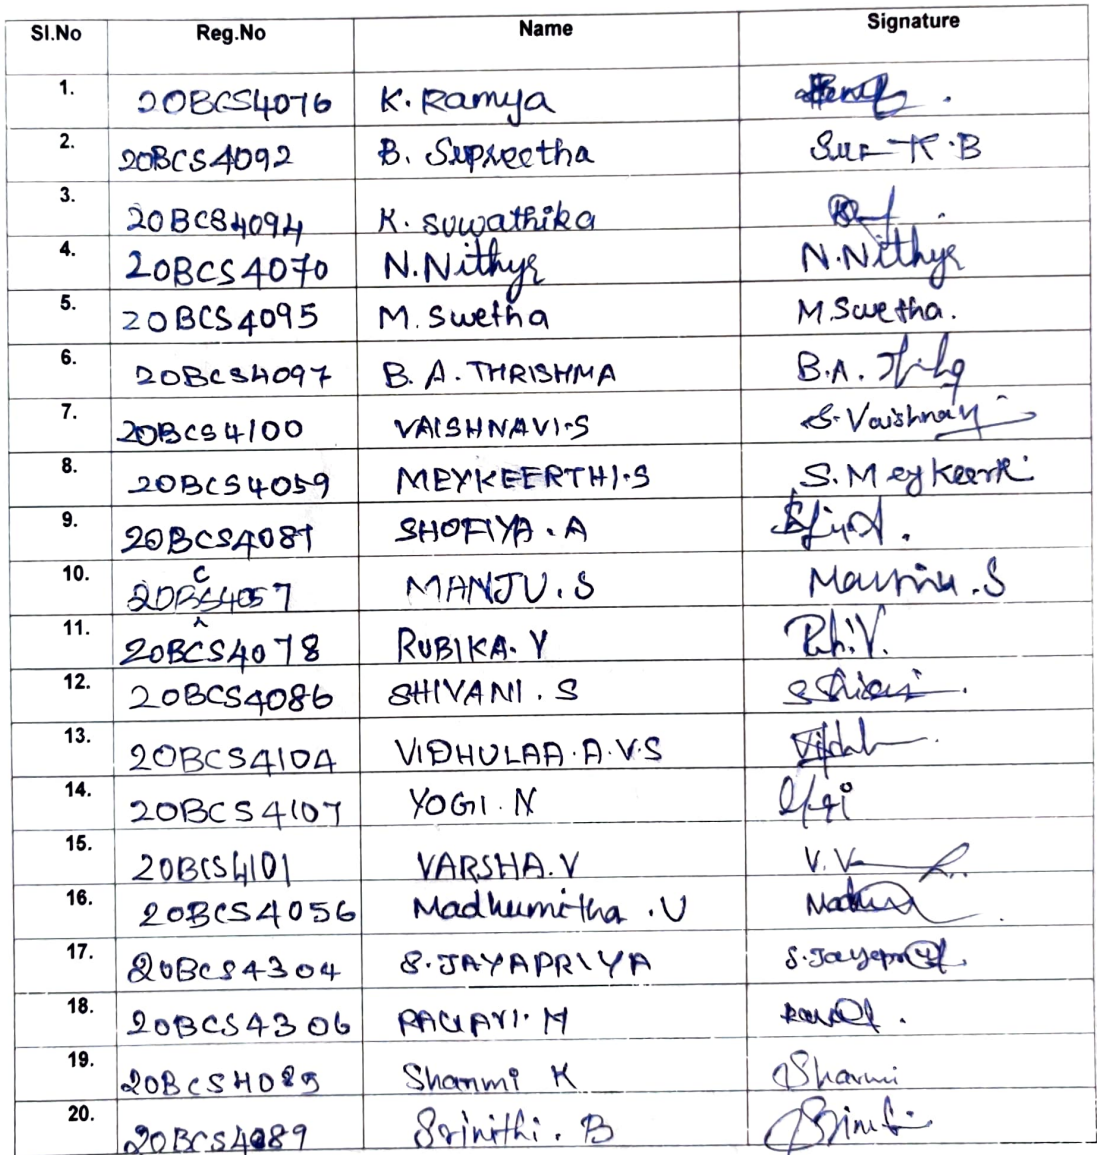 Sl.No Reg.No Name Signature
1. 20BCS4076 K. Ramya
2. 20BCS4092 B. Supreetha
3. 20BCS4094 K. Suwathika
4. 20BCS4070 N.Nithya N.Nithya
5. 20BCS4095 M. Swetha M.Swetha.
6. 20BCS4097 B. A. THRISHMA B.A.
7. 20BCS4100 VAISHNAVI.S S.Vaishnavi
8. 20BCS4059 MEYKEERTHI.S S.Meykeerthi
9. 20BCS4081 SHOFIYA . A
10. 20BCS4057 MANJU . S
11. 20BCS4078 RUBIKA. V
12. 20BCS4086 SHIVANI . S
13. 20BCS4104 VIDHULAA.A.V.S
14. 20BCS4107 YOGI . N
15. 20BCS4101 VARSHA.V
16. 20BCS4056 Madhumitha .U
17. 20BCS4304 S.JAYAPRIYA
18. 20BCS4306 M
19. 20BCS4085 Sharmi K Sharmi
20. 20BCS4089 Srinithi . B